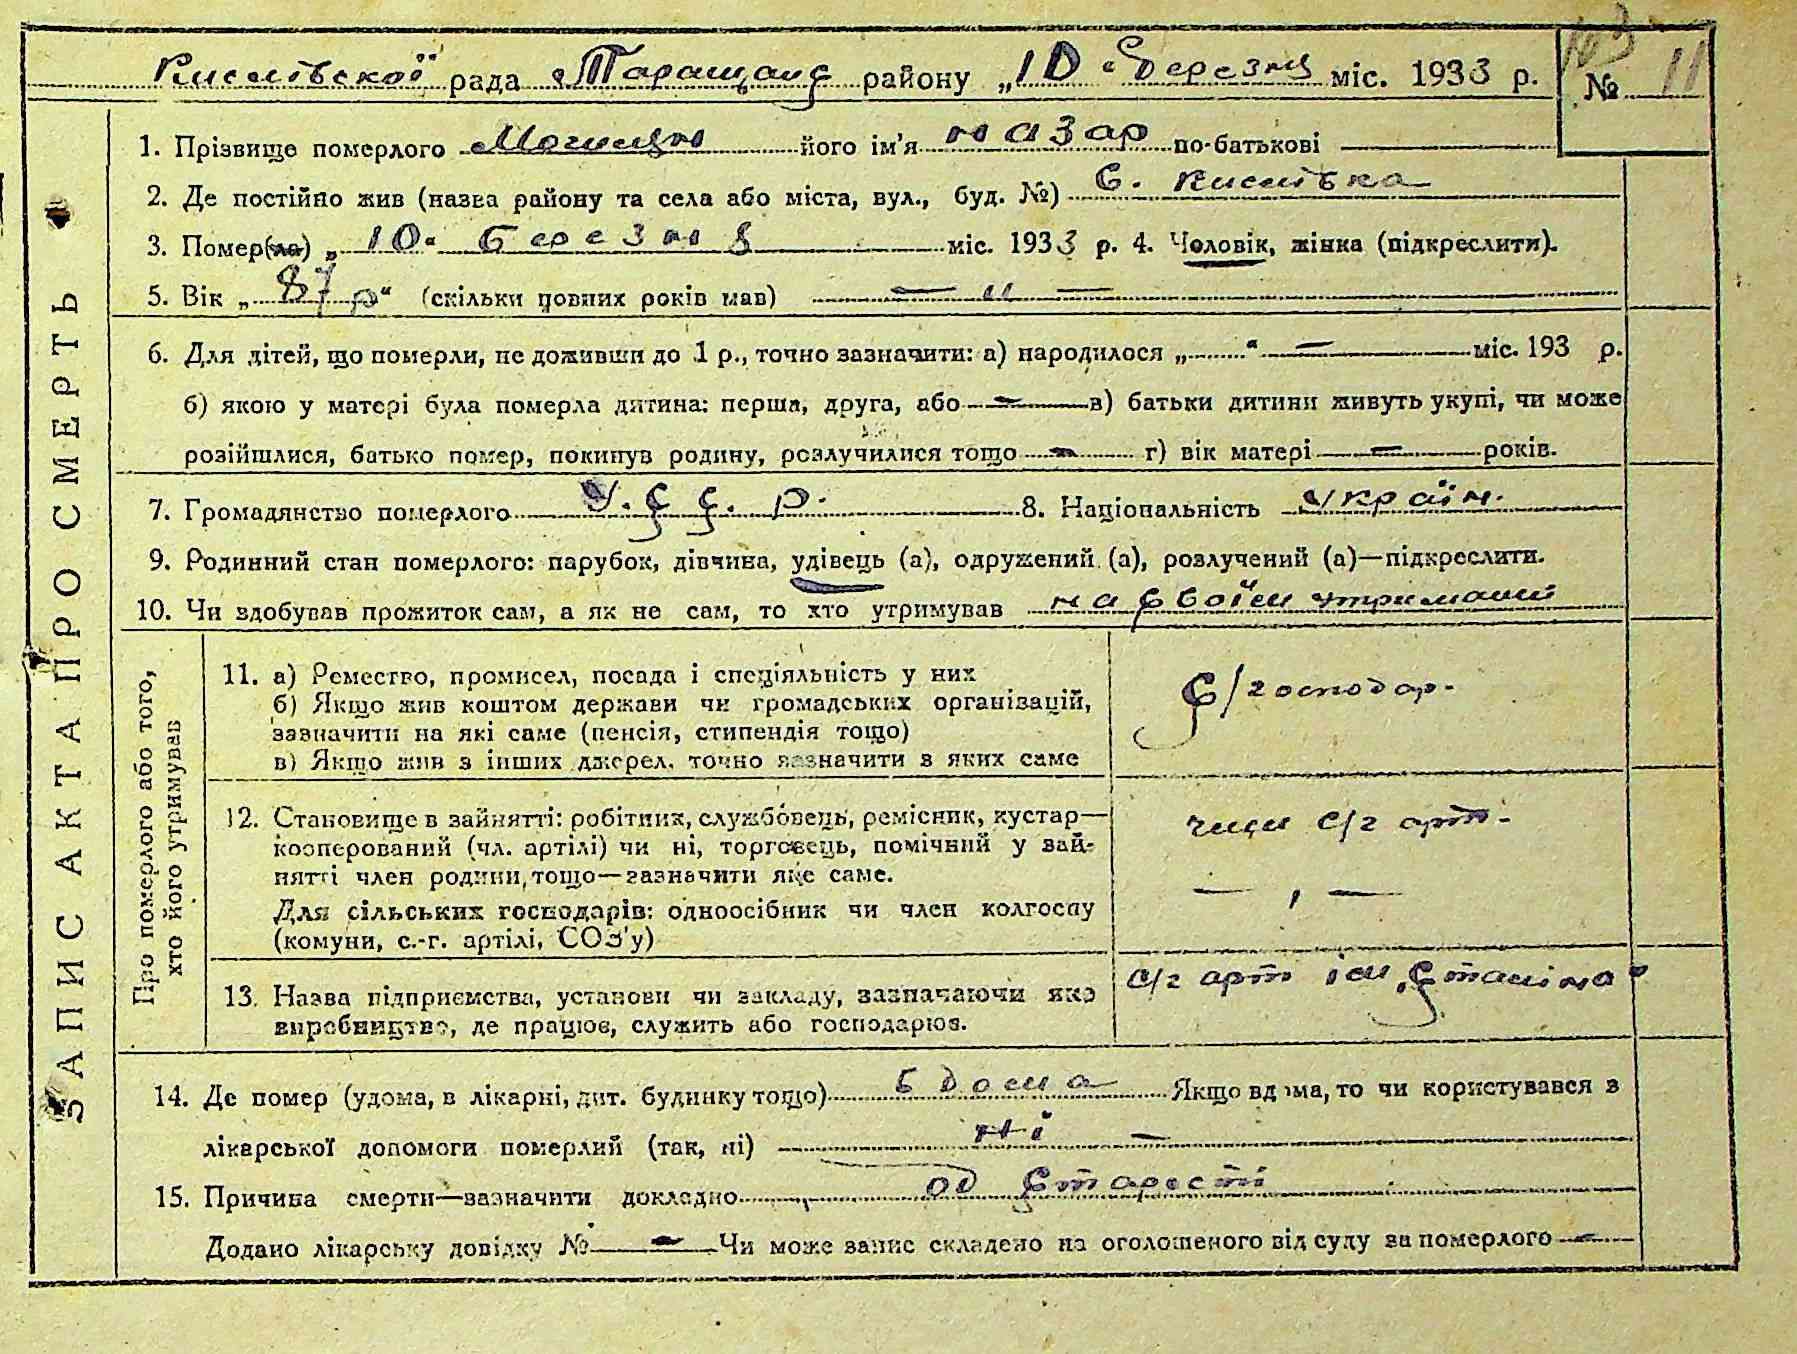 Кислівської рада Таращанс району „10" березня міс. 1933 р. № 11
1. Прізвище померлого його ім'я Назар по-батькові —
2. Де постійно жив (назва району та села або міста, вул., буд. №) С. Кислівка
3. Помер(ла) „10" березня міс. 1933 р. 4. Чоловік, жінка (підкреслити).
5. Вік „87 р" (скільки повних років мав) — „ —
6. Для дітей, що померли, не доживши до 1 р., точно зазначити: а) народилося „ " — міс. 193 р.
б) якою у матері була померла дитина: перша, друга, або — в) батьки дитини живуть укупі, чи може
розійшлися, батько помер, покинув родину, розлучилися тощо — г) вік матері — років.
7. Громадянство померлого У.С.С.Р. 8. Національність Україн.
9. Родинний стан померлого: парубок, дівчина, удівець (а), одружений (а), розлучений (а)—підкреслити.
10. Чи здобував прожиток сам, а як не сам, то хто утримував на своїм утриманні
ЗАПИС АКТА ПРО СМЕРТЬ
Про померлого або того,
хто його утримував
11. а) Ремество, промисел, посада і спеціяльність у них
б) Якщо жив коштом держави чи громадських організацій,
зазначити на які саме (пенсія, стипендія тощо)
в) Якщо жив з інших джерел, точно зазначити з яких саме
С/господар.
12. Становище в зайнятті: робітник, службовець, ремісник, кустар—
кооперований (чл. артілі) чи ні, торговець, помічний у зай-
нятті член родини, тощо—зазначити яке саме.
Для сільських господарів: одноосібник чи член колгоспу
(комуни, с.-г. артілі, СОЗ'у)
член с/г арт.
— „ —
13. Назва підприємства, установи чи закладу, зазначаючи яке
виробництво, де працює, служить або господарює.
с/г арт ім „Сталіна"
14. Де помер (удома, в лікарні, дит. будинку тощо) в дома Якщо вдома, то чи користувався з
лікарської допомоги померлий (так, ні) ні —
15. Причина смерти—зазначити докладно од старості
Додано лікарську довідку № — Чи може запис складено на оголошеного від суду за померлого —